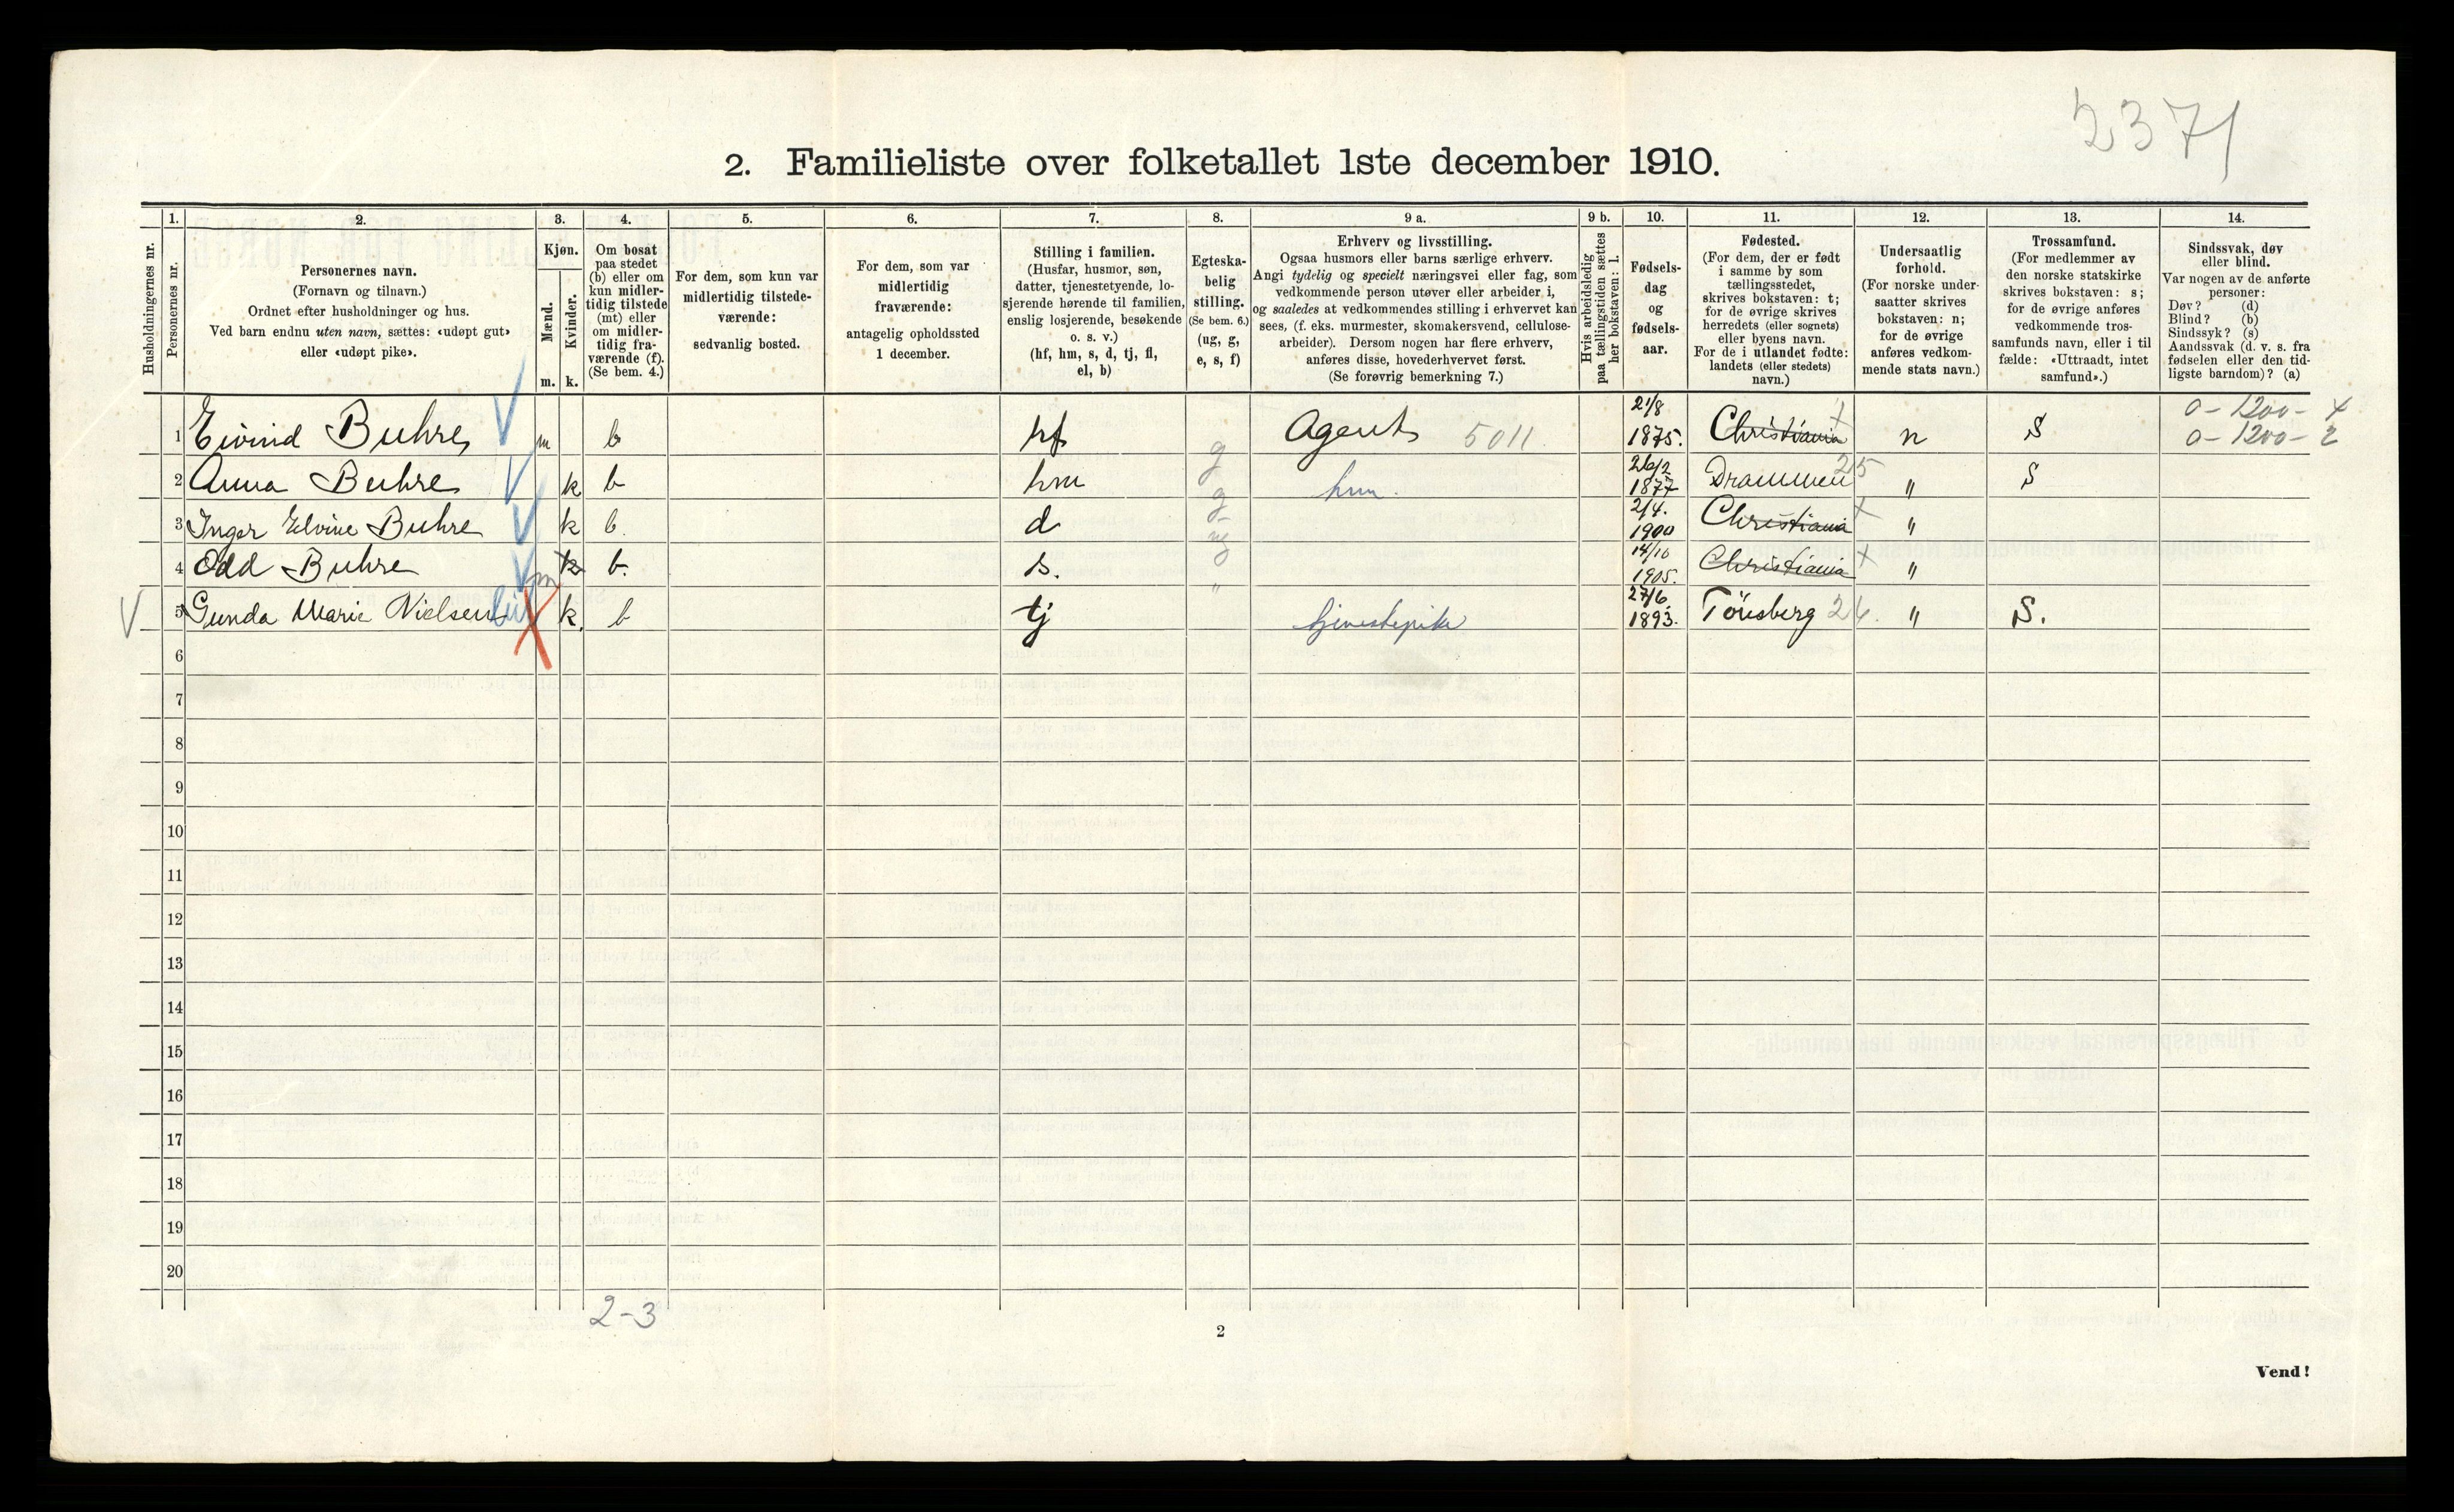 2371
2. Familieliste over folketallet 1ste december 1910.
Husholdningernes nr.
1.
Personernes nr.
2.
Personernes navn.
(Fornavn og tilnavn.)
Ordnet efter husholdninger og hus.
Ved barn endnu uten navn, sættes: «udøpt gut»
eller «udøpt pike».
3.
Kjøn.
Mænd.
Kvinder.
m.
k.
4.
Om bosat
paa stedet
(b) eller om
kun midler-
tidig tilstede
(mt) eller
om midler-
tidig fra-
værende (f).
(Se bem. 4.)
5.
For dem, som kun var
midlertidig tilstede-
værende:
sedvanlig bosted.
6.
For dem, som var
midlertidig
fraværende:
antagelig opholdssted
1 december.
7.
Stilling i familien.
(Husfar, husmor, søn,
datter, tjenestetyende, lo-
sjerende hørende til familien,
enslig losjerende, besøkende
o. s. v.)
(hf, hm, s, d, tj, fl,
el, b)
8.
Egteska-
belig
stilling.
(Se bem. 6.)
(ug, g,
e, s, f)
9 a.
Erhverv og livsstilling.
Ogsaa husmors eller barns særlige erhverv.
Angi tydelig og specielt næringsvei eller fag, som
vedkommende person utøver eller arbeider i,
og saaledes at vedkommendes stilling i erhvervet kan
sees, (f. eks. murmester, skomakersvend, cellulose-
arbeider). Dersom nogen har flere erhverv,
anføres disse, hovederhvervet først.
(Se forøvrig bemerkning 7.)
9 b.
Hvis arbeidsledig
paa tællingstiden sættes
her bokstaven: l.
10.
Fødsels-
dag
og
fødsels-
aar.
11.
Fødested.
(For dem, der er født
i samme by som
tællingsstedet,
skrives bokstaven: t;
for de øvrige skrives
herredets (eller sognets)
eller byens navn.
For de i utlandet fødte:
landets (eller stedets)
navn.)
12.
Undersaatlig
forhold.
(For norske under-
saatter skrives
bokstaven: n;
for de øvrige
anføres vedkom-
mende stats navn.)
13.
Trossamfund.
(For medlemmer av
den norske statskirke
skrives bokstaven: s;
for de øvrige anføres
vedkommende tros-
samfunds navn, eller i til
fælde: «Uttraadt, intet
samfund».)
14.
Sindssvak, døv
eller blind.
Var nogen av de anførte
personer:
Døv? (d)
Blind? (b)
Sindssyk? (s)
Aandssvak (d. v. s. fra
fødselen eller den tid-
ligste barndom)? (a)
1 Eivind Buhre m b hf g Agent 5011 21/8 1875. Christiania n S 0 - 1200 - 4
0 - 1200 - 2
2 Anna Buhre k b hm g hm. 26/2 1877 Drammen 25 " S
3 Inger Elvine Buhre k b. d 2/4. 1900 Christiania "
4 Odd Buhre k m b. s. 14/10 1905. Christiania "
5 Gunda Marie Nielsen k. b tj " tjenestepike 27/6 1893. Tönsberg 26. " S.
6
7
8
9
10
11
12
13
14
15
16
17
18
19
20
2-3
2
Vend!